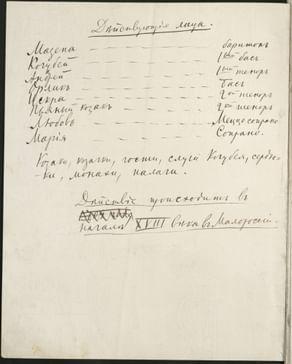 Дѣйствующія лица.
Мазепа — — — — — баритонъ
Кочубей — — — — — 1ый басъ
Андрей — — — — — 1ый теноръ
Орликъ — — — — — басъ
Искра — — — — — 2ой теноръ
Пьяный козакъ — — — — 2ой теноръ
Любовь — — — — — Меццо сопрано
Марія — — — — — Сопрано.
Козаки, козачки, гости, слуги Кочубея, сердю-
ки, монахи, палачи.
Дѣйствіе происходитъ въ
началѣ XVIII вѣка въ Малороссіи.